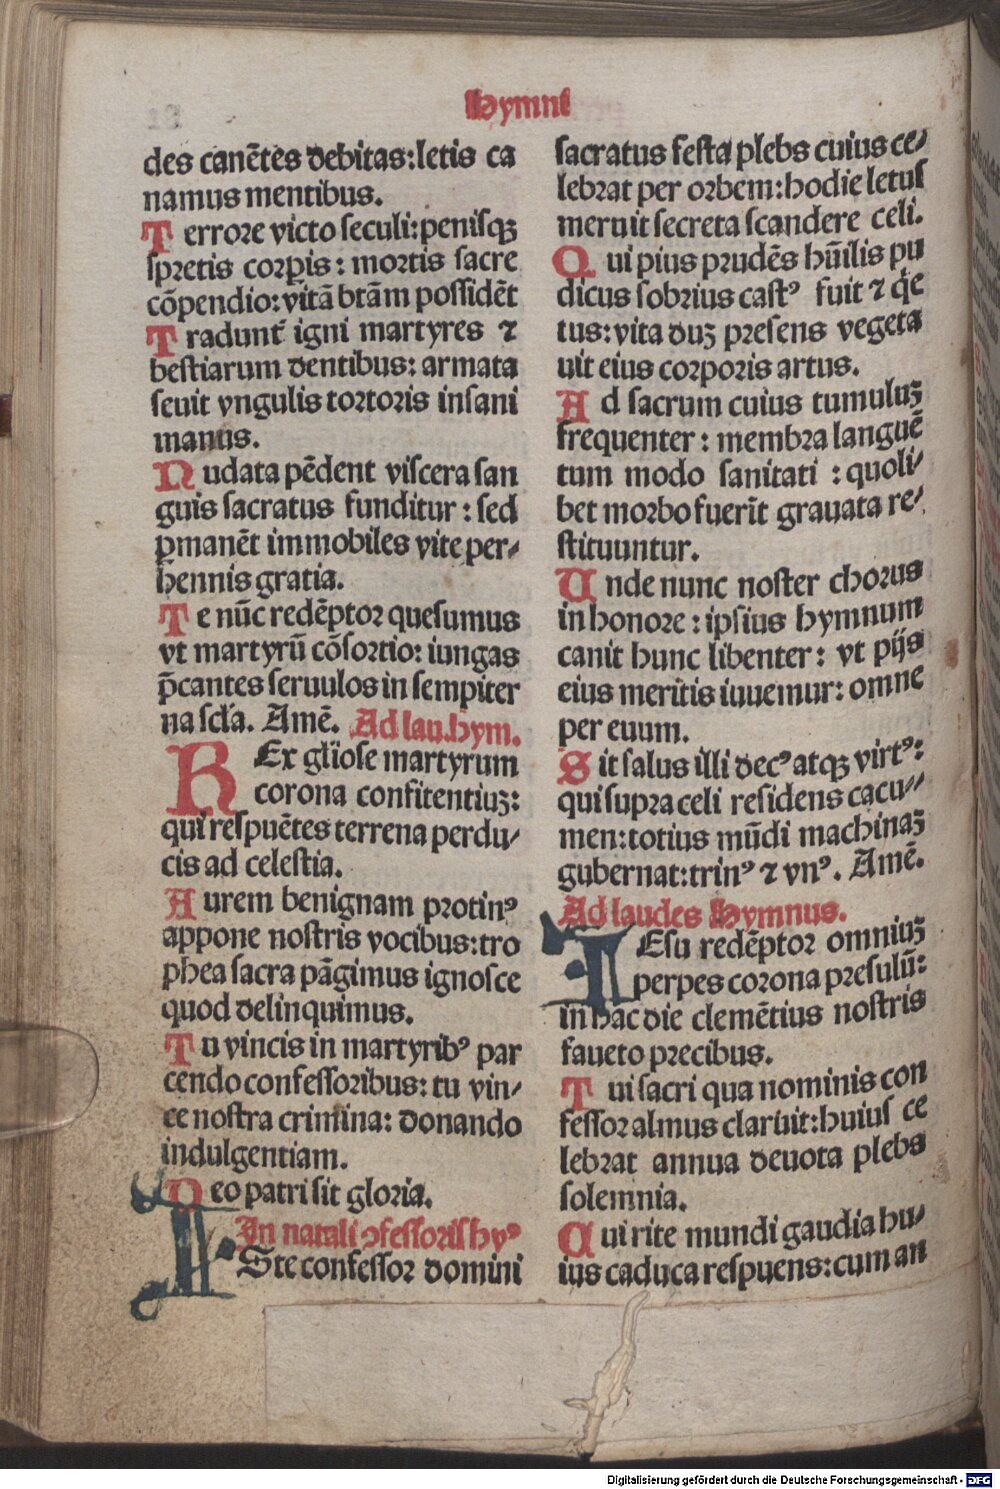 Hymni
des canētes debitas:letis ca
namus mentibus.
T errore victo seculi:penisqꝫ
spretis corꝑis: mortis sacre
cōpendio:vitā btām possidēt
T radunt̄ igni martyres ⁊
bestiarum dentibus: armata
seuit vngulis tortoris insani
manus.
N udata pēdent viscera san
guis sacratus funditur: sed
ꝑmanēt immobiles vite per-
hennis gratia.
T e nūc redēptor quesumus
vt martyrū cōsortio: iungas
p̄cantes seruulos in sempiter
na scła. Amē. Ad lau.hym.
REx gl̄iose martyrum
corona confitentiuꝫ:
qui respuētes terrena perdu-
cis ad celestia.
A urem benignam protinꝰ
appone nostris vocibus:tro
phea sacra pāgimus ignosce
quod delinquimus.
T u vincis in martyribꝰ par
cendo confessoribus: tu vin-
ce nostra crimina: donando
indulgentiam.
D eo patri sit gloria.
In natali ↄfessoris hyꝰ
ISte confessor domini
sacratus festa plebs cuius ce-
lebrat per orbem:hodie letus
meruit secreta scandere celi.
Q ui pius prudēs hūilis pu
dicus sobrius castꝰ fuit ⁊ q̇e
tus:vita duꝫ presens vegeta
uit eius corporis artus.
A d sacrum cuius tumuluꝫ
frequenter: membra languē
tum modo sanitati : quoli-
bet morbo fuerīt grauata re-
stituuntur.
U nde nunc noster chorus
in honore: ipsius hymnum
canit hunc libenter: vt pijs
eius meritis iuuemur: omne
per euum.
S it salus illi decꝰ atqꝫ virtꝰ:
qui supra celi residens cacu-
men:totius mūdi machinaꝫ
gubernat:trinꝰ ⁊ vnꝰ. Amē.
Ad laudes Hymnus.
IEsu redēptor omniuꝫ
perpes corona presulū:
in hac die clemētius nostris
faueto precibus.
T ui sacri qua nominis con
fessor almus claruit:huius ce
lebrat annua deuota plebs
solemnia.
Q ui rite mundi gaudia hu-
ius caduca respuens:cum an
Digitalisierung gefördert durch die Deutsche Forschungsgemeinschaft - DFG